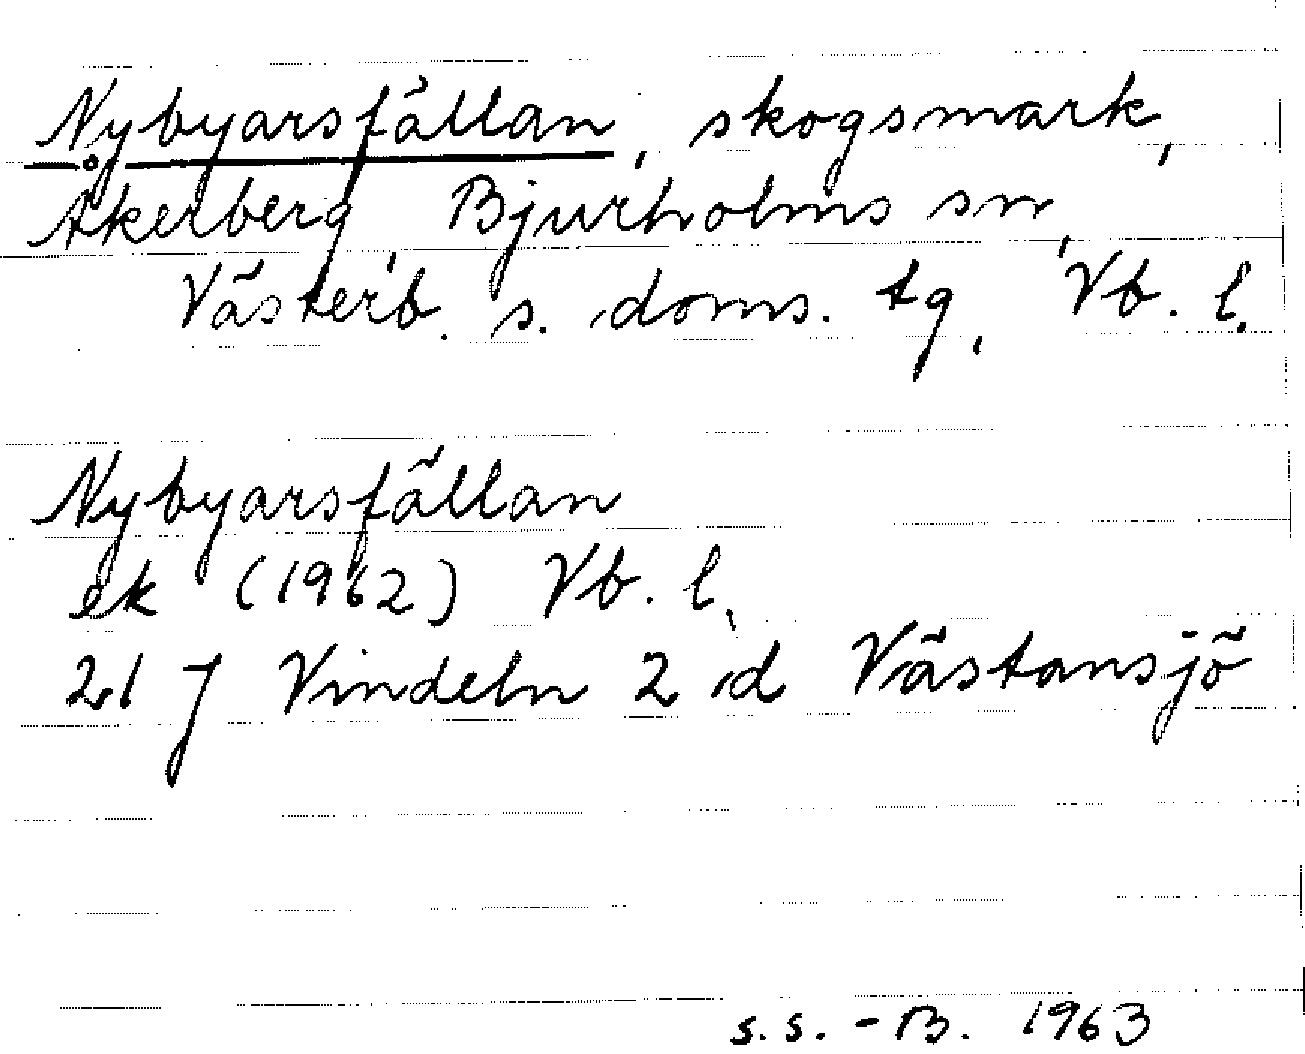 Nybyarsfällan, skogsmark,
Åkerberg, Bjurholms sn,
Västerb. s. doms. tg, Vb. l.
Nybyarsfällan
ek (1962) Vb. l.
21 J Vindeln 2 d Västansjö
s.s. - B. 1963